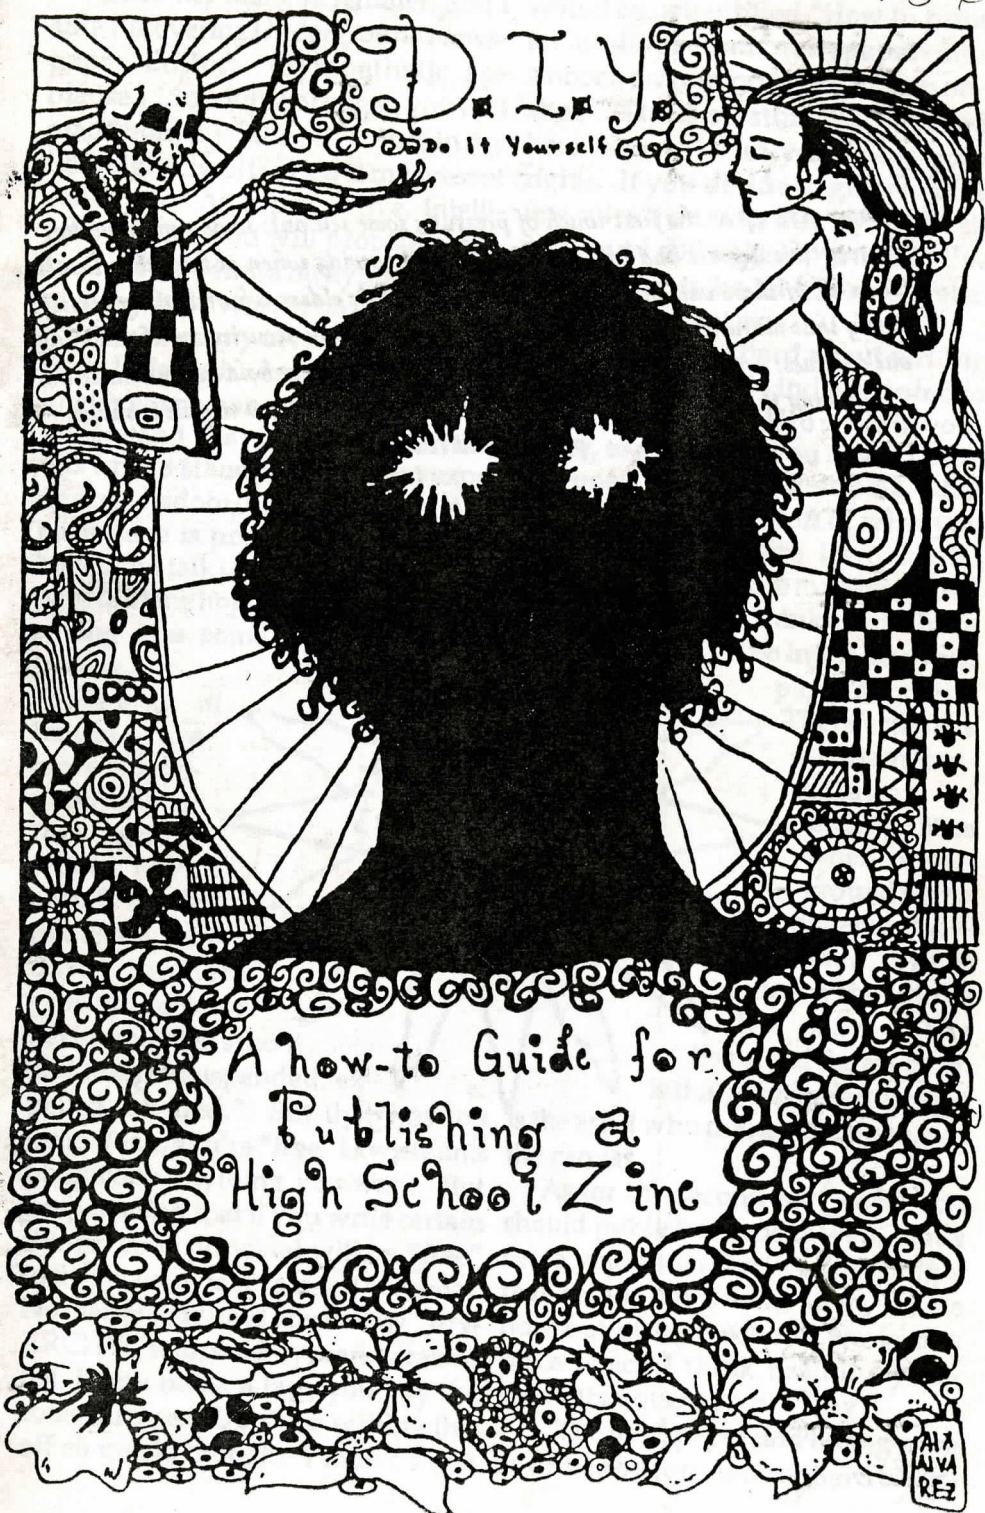 D.I.Y.
Do it Yourself
A how-to Guide for
Publishing a
High School Zine
AIX
ALVA
REZ